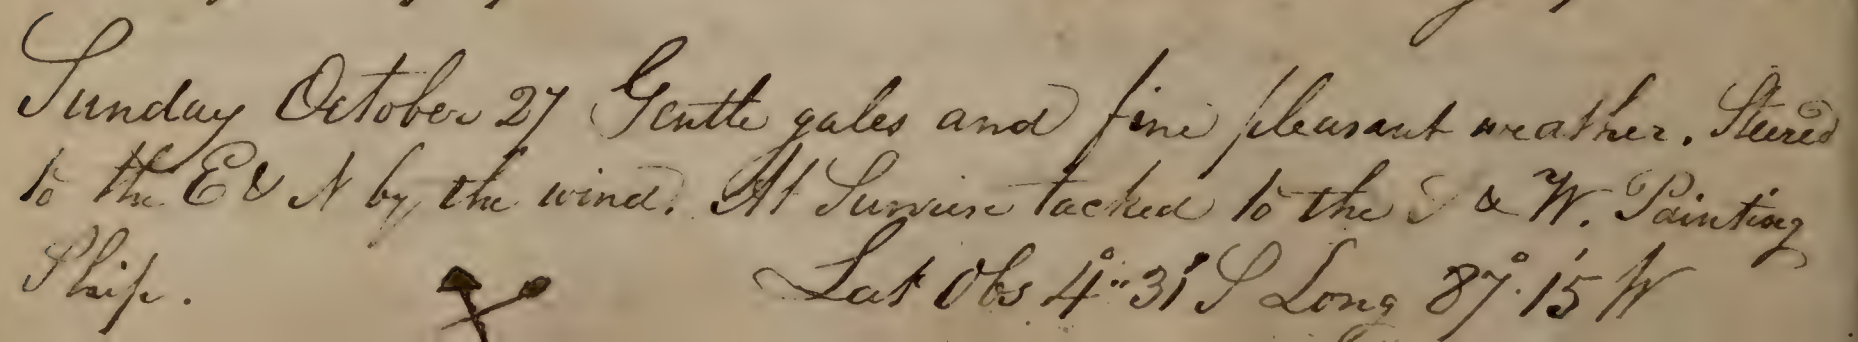 Sunday October 27 Gentle gales and fine pleasant weather. Steered
to the E & N by the wind. At Sunrise tacked to the S & W. Painting
Ship.
Lat Obs 4°" 31' S Long 87°·15' W